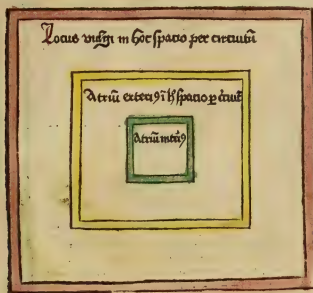 Locus vulgi in hoc spacio per circuitū
Atriū exteriꝰ ī hͦ spacio ꝑ cͥcuitū
Atriū interiꝰ